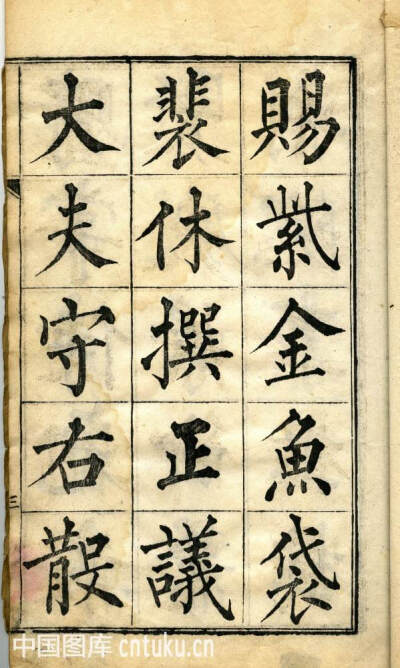 賜紫金魚袋
裴休撰正議
大夫守右散
三
中国图库 cntuku.cn